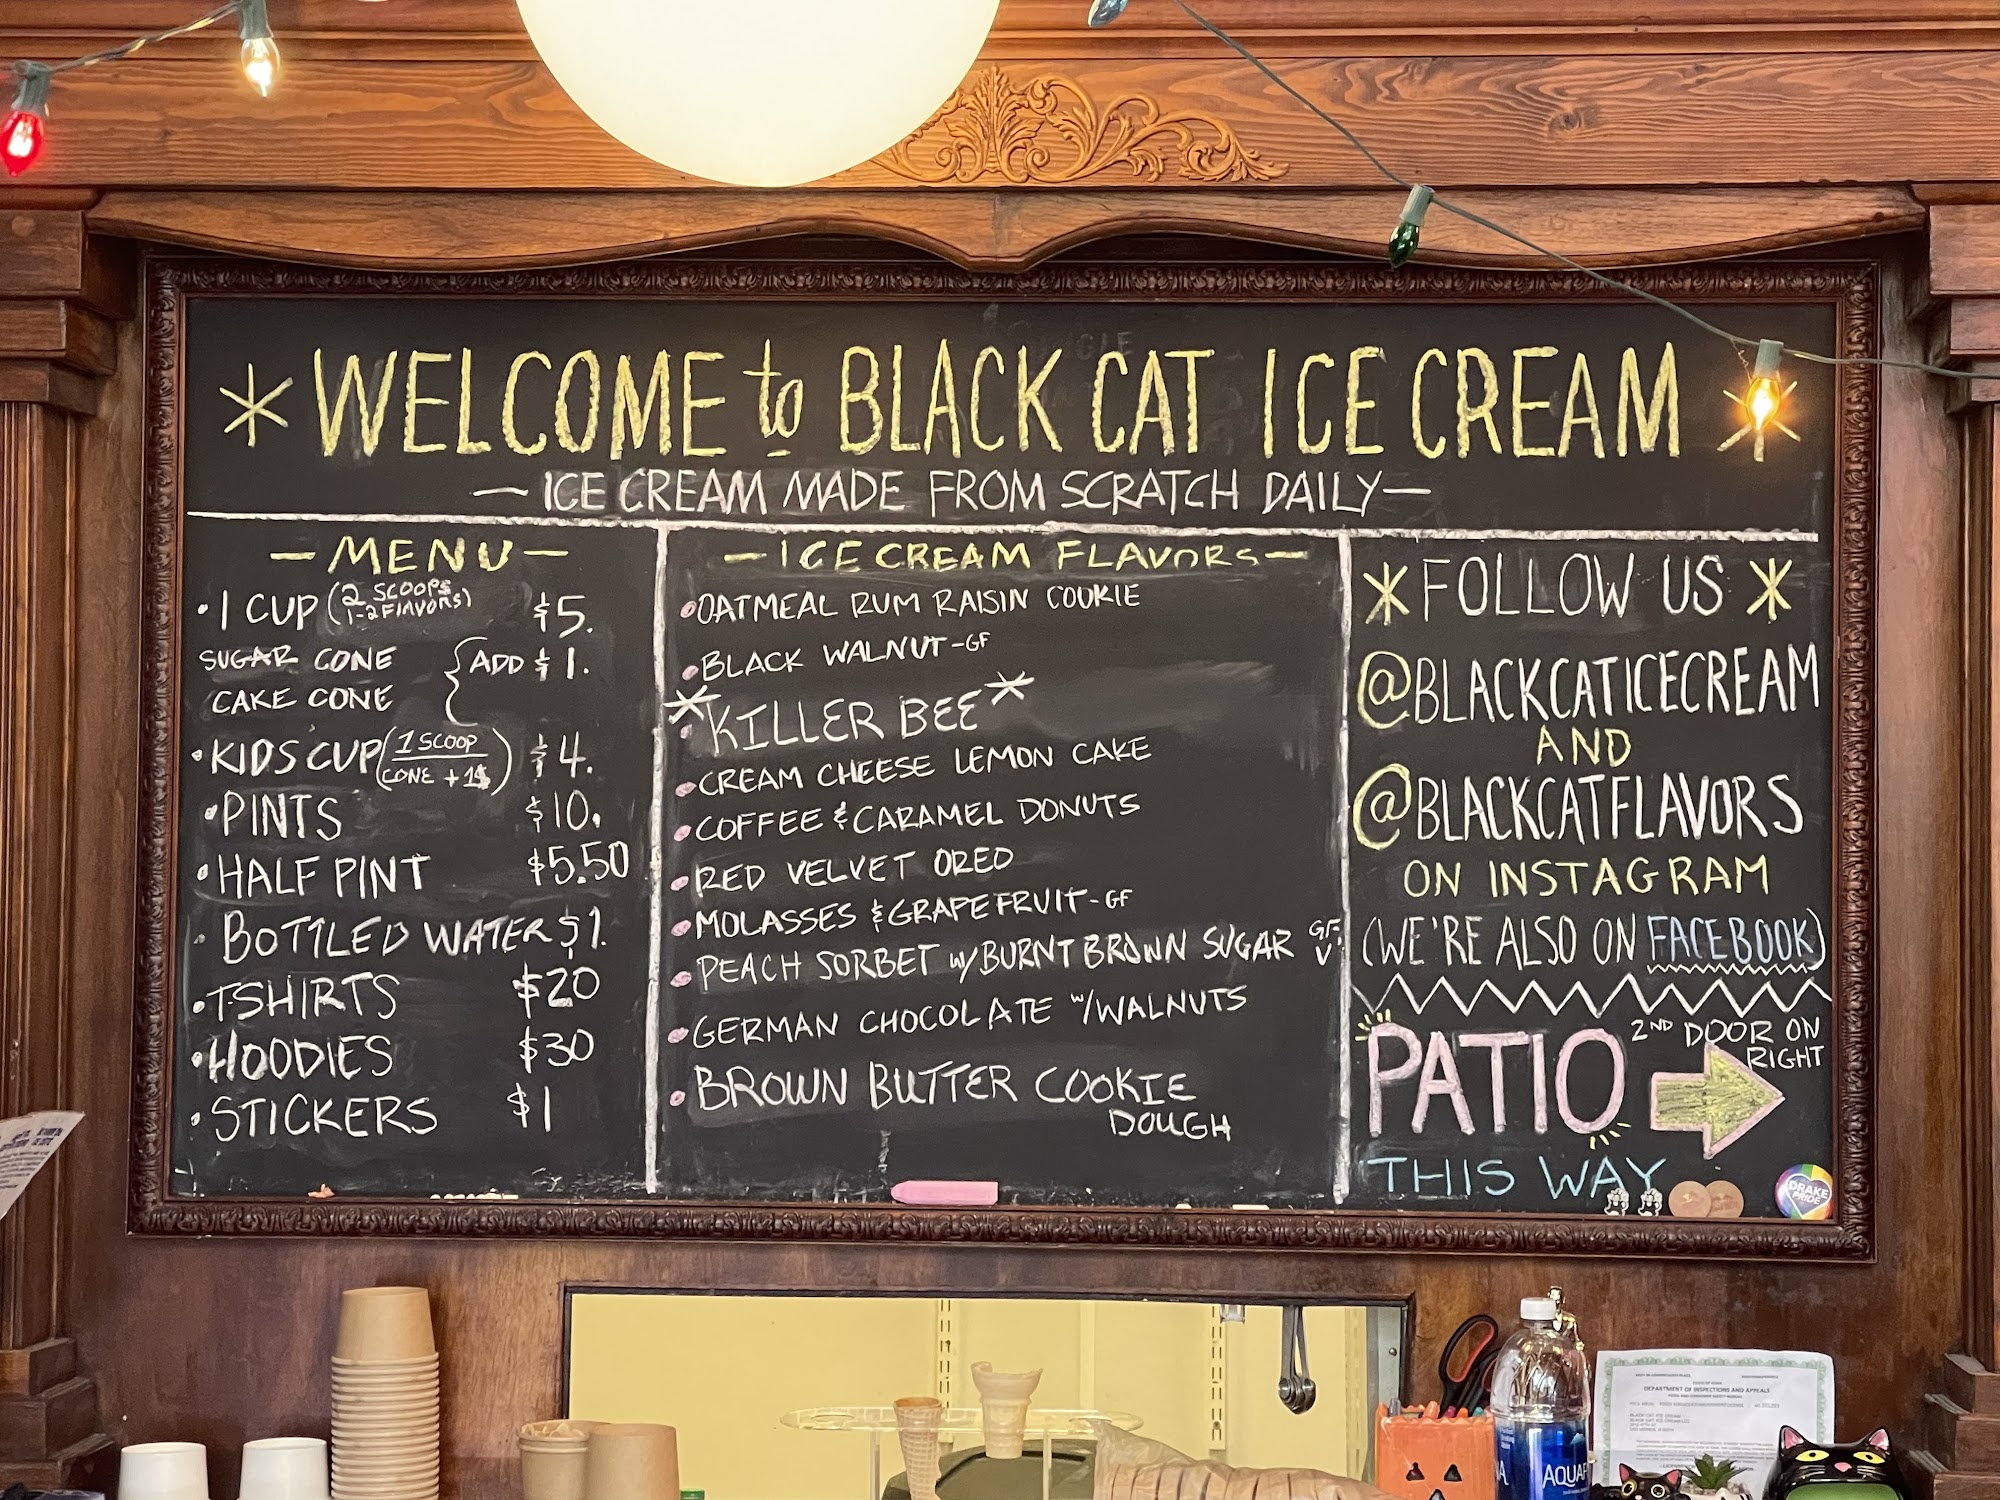 WELCOME to BLACK CAT ICE CREAM
— ICE CREAM MADE FROM SCRATCH DAILY —
— MENU —
• 1 CUP (2 SCOOPS 1-2 FLAVORS) $5.
SUGAR CONE
CAKE CONE
ADD $1.
• KIDS CUP (1 SCOOP CONE + 1$) $4.
• PINTS $10.
• HALF PINT $5.50
• BOTTLED WATER $1.
• T-SHIRTS $20
• HOODIES $30
• STICKERS $1
— ICE CREAM FLAVORS —
• OATMEAL RUM RAISIN COOKIE
• BLACK WALNUT - GF
• *KILLER BEE*
• CREAM CHEESE LEMON CAKE
• COFFEE & CARAMEL DONUTS
• RED VELVET OREO
• MOLASSES & GRAPEFRUIT - GF
• PEACH SORBET w/ BURNT BROWN SUGAR GF, V
• GERMAN CHOCOLATE w/ WALNUTS
• BROWN BUTTER COOKIE
DOUGH
* FOLLOW US *
@BLACKCATICECREAM
AND
@BLACKCATFLAVORS
ON INSTAGRAM
(WE'RE ALSO ON FACEBOOK)
PATIO
2ND DOOR ON
RIGHT
THIS WAY
DRAKE
PRIDE
DEPARTMENT OF INSPECTIONS AND APPEALS
AQUAF